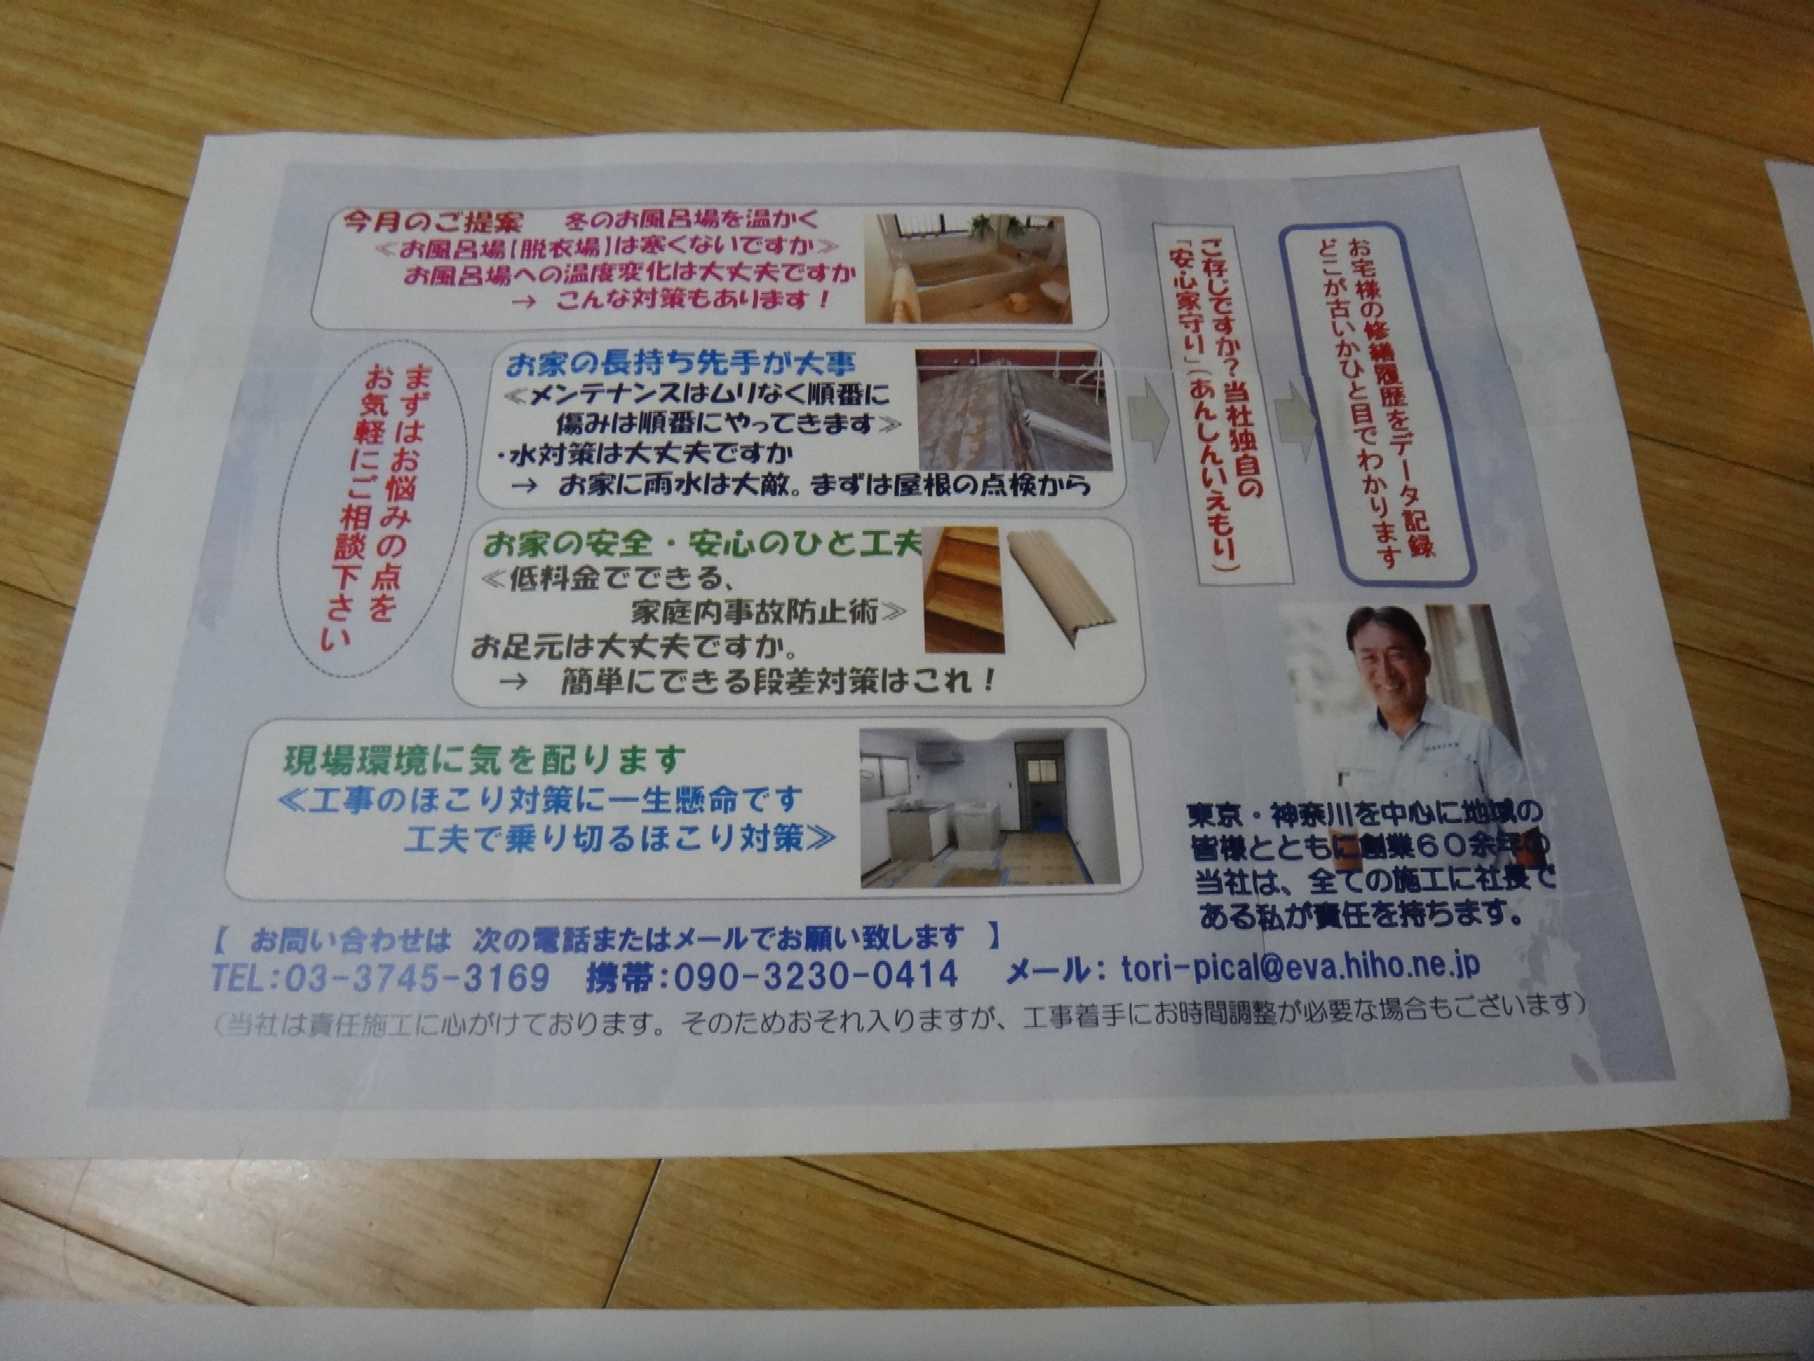 今月のご提案　冬のお風呂場を温かく
≪お風呂場【脱衣場】は寒くないですか≫
お風呂場への温度変化は大丈夫ですか
→　こんな対策もあります！
まずはお悩みの点を
お気軽にご相談下さい
お家の長持ち先手が大事
≪メンテナンスはムリなく順番に
傷みは順番にやってきます≫
・水対策は大丈夫ですか
→　お家に雨水は大敵。まずは屋根の点検から
お家の安全・安心のひと工夫
≪低料金でできる、
家庭内事故防止術≫
お足元は大丈夫ですか。
→　簡単にできる段差対策はこれ！
現場環境に気を配ります
≪工事のほこり対策に一生懸命です
工夫で乗り切るほこり対策≫
ご存じですか？当社独自の
「安心家守り」（あんしんいえもり）
お宅様の修繕履歴をデータ記録
どこが古いかひと目でわかります
東京・神奈川を中心に地域の
皆様とともに創業６０余年の
当社は、全ての施工に社長で
ある私が責任を持ちます。
【　お問い合わせは　次の電話またはメールでお願い致します　】
TEL：03-3745-3169　携帯：090-3230-0414　メール： tori-pical@eva.hiho.ne.jp
（当社は責任施工に心がけております。そのためおそれ入りますが、工事着手にお時間調整が必要な場合もございます）